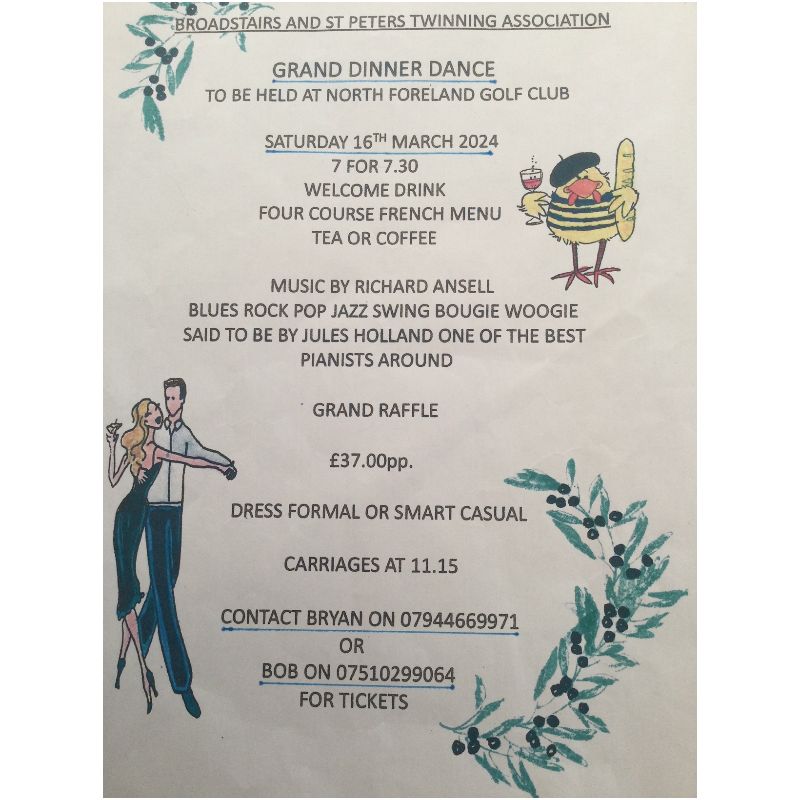 BROADSTAIRS AND ST PETERS TWINNING ASSOCIATION
GRAND DINNER DANCE
TO BE HELD AT NORTH FORELAND GOLF CLUB
SATURDAY 16TH MARCH 2024
7 FOR 7.30
WELCOME DRINK
FOUR COURSE FRENCH MENU
TEA OR COFFEE
MUSIC BY RICHARD ANSELL
BLUES ROCK POP JAZZ SWING BOUGIE WOOGIE
SAID TO BE BY JULES HOLLAND ONE OF THE BEST
PIANISTS AROUND
GRAND RAFFLE
£37.00pp.
DRESS FORMAL OR SMART CASUAL
CARRIAGES AT 11.15
CONTACT BRYAN ON 07944669971
OR
BOB ON 07510299064
FOR TICKETS